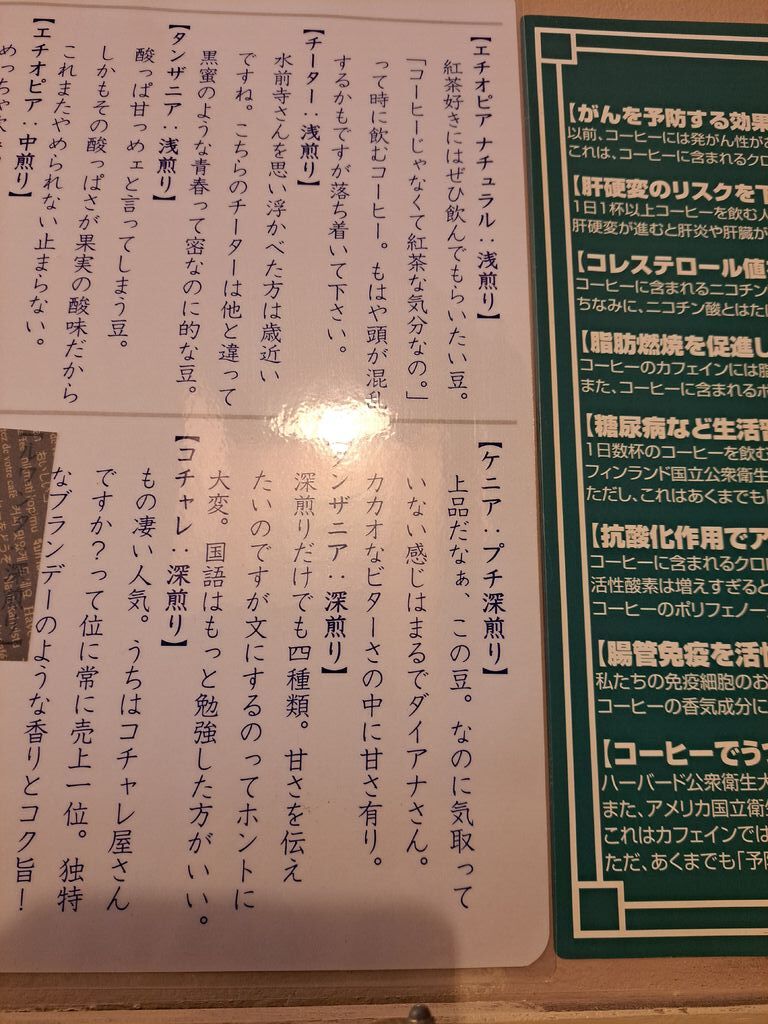 【エチオピア ナチュラル：浅煎り】
紅茶好きにはぜひ飲んでもらいたい豆。
「コーヒーじゃなくて紅茶な気分なの。」
って時に飲むコーヒー。もはや頭が混乱
するかもですが落ち着いて下さい。
【チーター：浅煎り】
水前寺さんを思い浮かべた方は歳近い
ですね。こちらのチーターは他と違って
黒蜜のような青春って密なのに的な豆。
【タンザニア：浅煎り】
酸っぱ甘っめェと言ってしまう豆。
しかもその酸っぱさが果実の酸味だから
これまたやめられない止まらない。
【エチオピア：中煎り】
めっちゃ
【ケニア：プチ深煎り】
上品だなぁ、この豆。なのに気取って
いない感じはまるでダイアナさん。
カカオなビターさの中に甘さ有り。
【タンザニア：深煎り】
深煎りだけでも四種類。甘さを伝え
たいのですが文にするのってホントに
大変。国語はもっと勉強した方がいい。
【コチャレ：深煎り】
もの凄い人気。うちはコチャレ屋さん
ですか？って位に常に売上一位。独特
なブランデーのような香りとコク旨！
【がんを予防する効果
以前、コーヒーには発がん性が
これは、コーヒーに含まれるクロ
【肝硬変のリスクを下
1日1杯以上コーヒーを飲む人
肝硬変が進むと肝炎や肝臓が
【コレステロール値
コーヒーに含まれるニコチン
ちなみに、ニコチン酸とはたば
【脂肪燃焼を促進し
コーヒーのカフェインには脂
また、コーヒーに含まれるポ
【糖尿病など生活習
1日数杯のコーヒーを飲む
フィンランド国立公衆衛生
ただし、これはあくまでも
【抗酸化作用でア
コーヒーに含まれるクロロ
活性酸素は増えすぎると
コーヒーのポリフェノー
【腸管免疫を活性
私たちの免疫細胞のお
コーヒーの香気成分に
【コーヒーでうつ
ハーバード公衆衛生大
また、アメリカ国立衛生
これはカフェインでは
ただ、あくまでも「予防